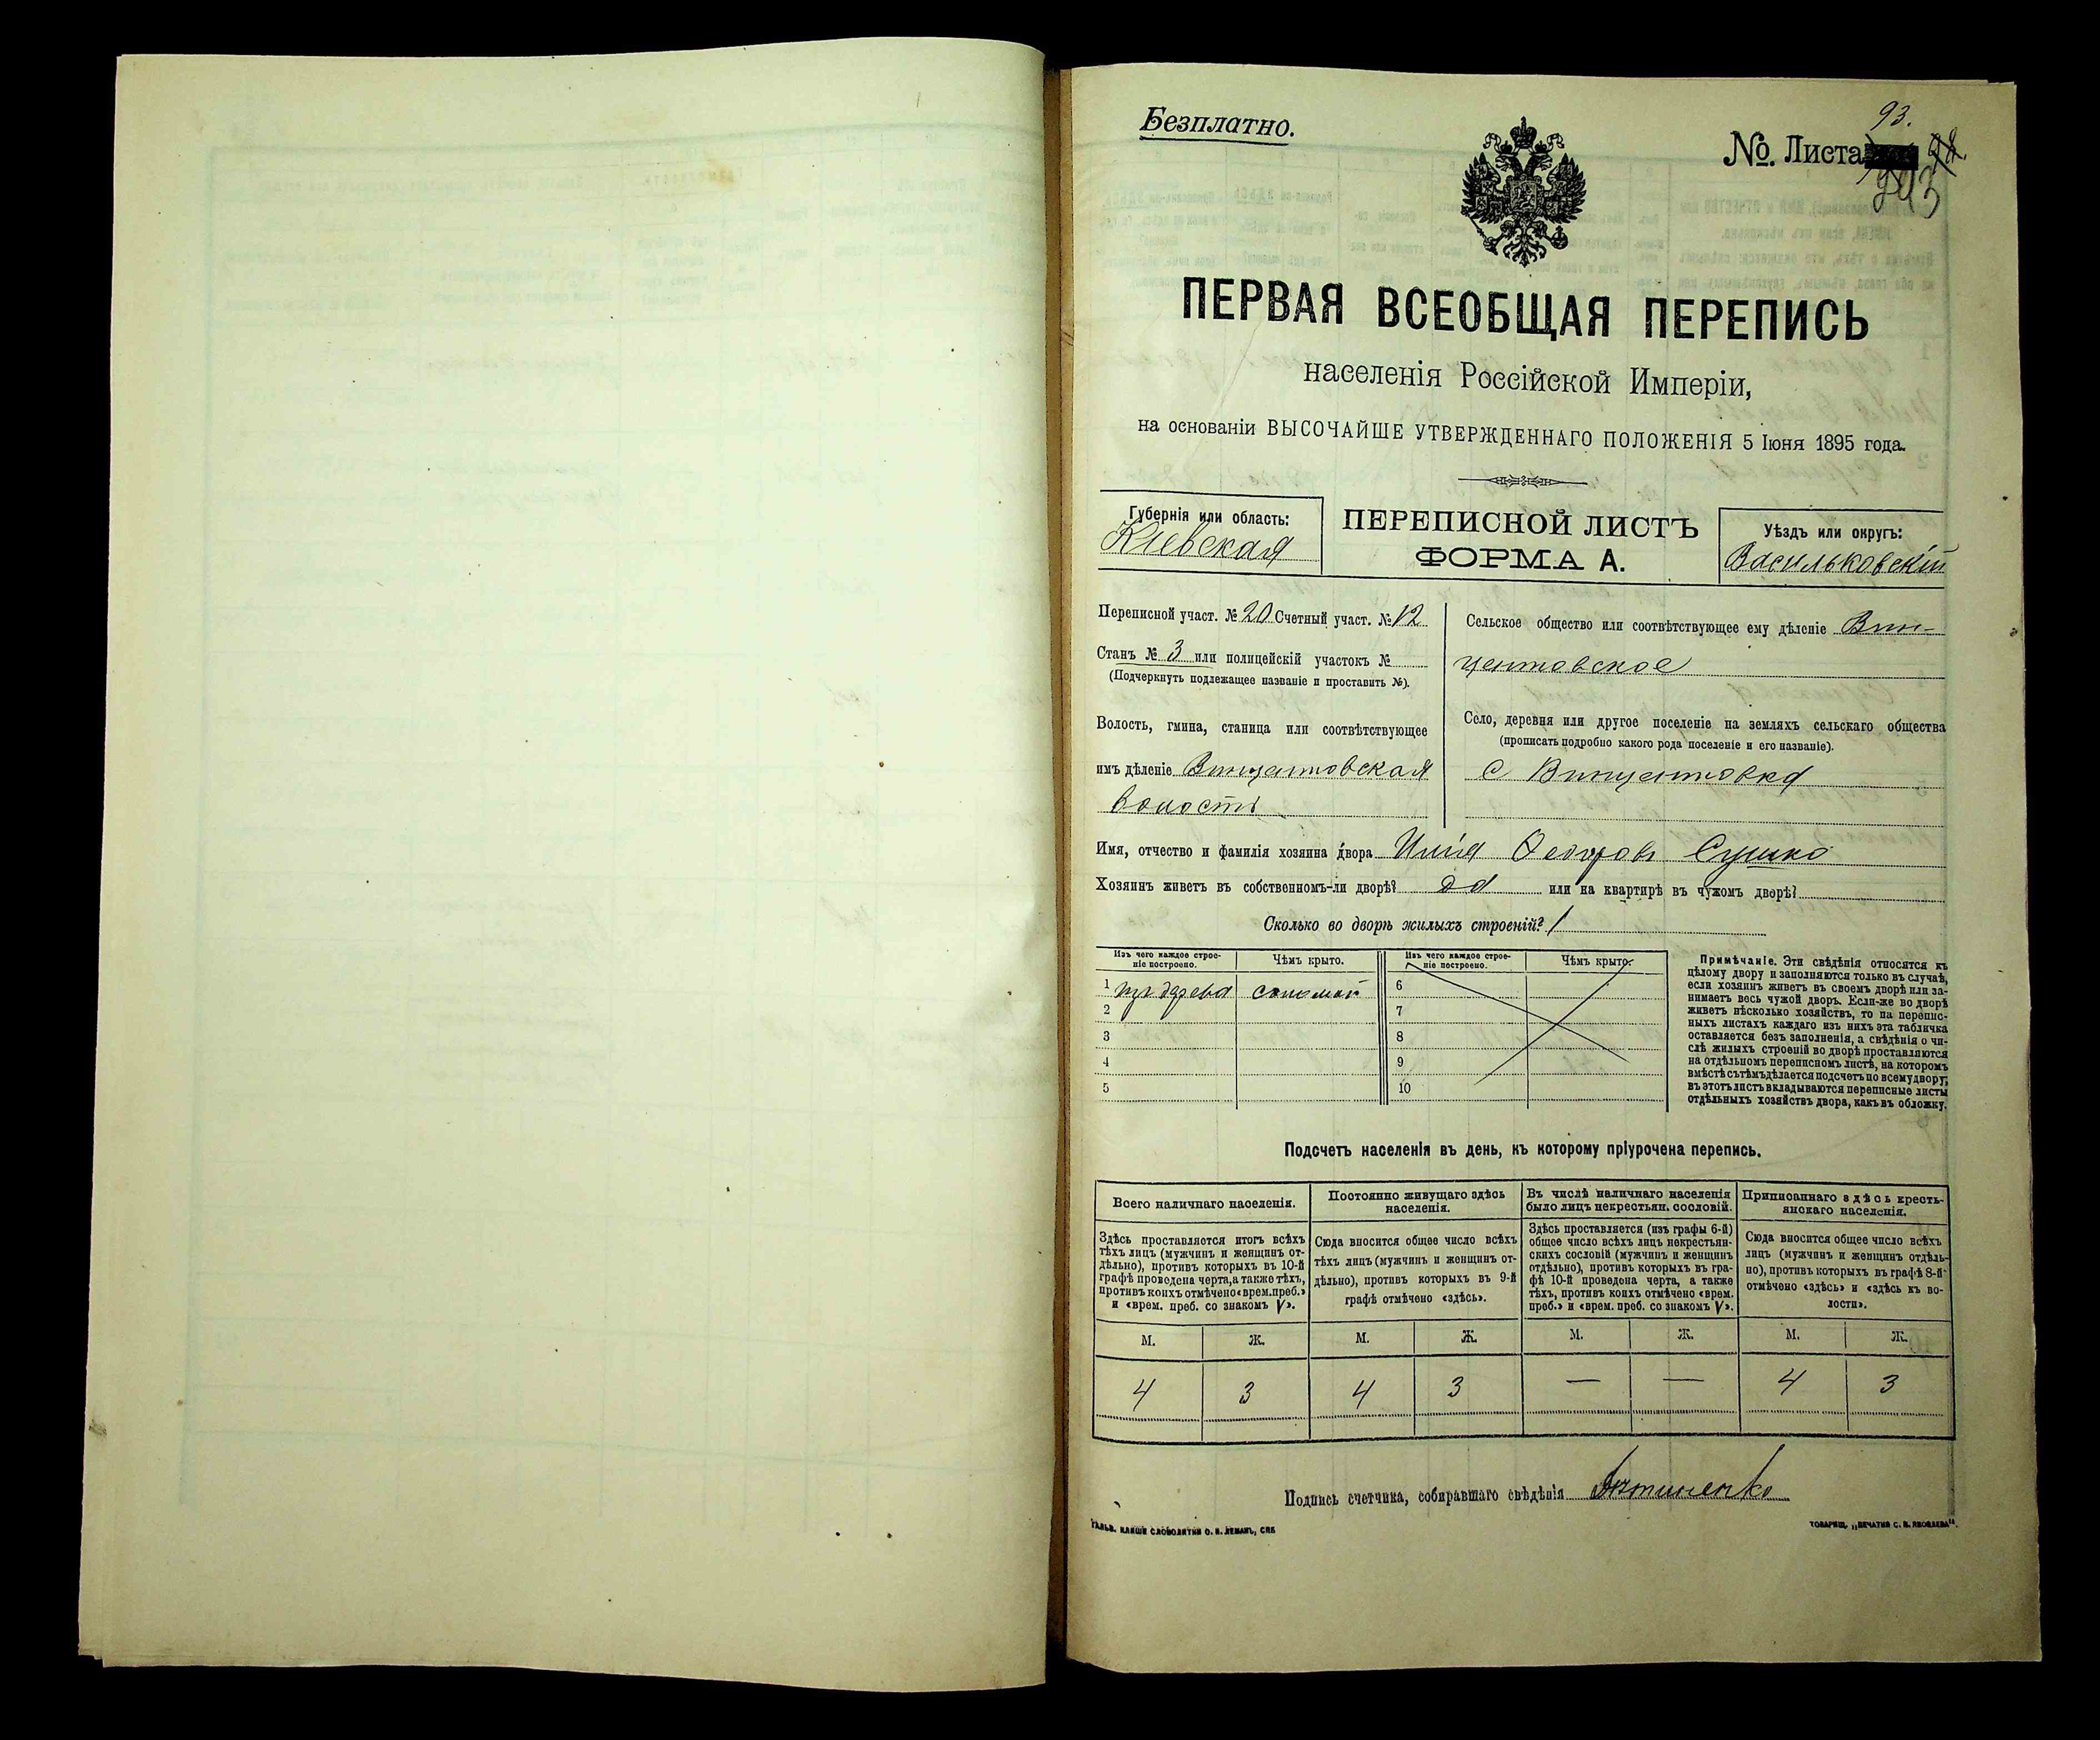 Безплатно.
93.
№. Листа
243
ПЕРВАЯ ВСЕОБЩАЯ ПЕРЕПИСЬ
населенія Россійской Имперіи,
на основаніи ВЫСОЧАЙШЕ УТВЕРЖДЕННАГО ПОЛОЖЕНІЯ 5 Іюня 1895 года.
Губернія или область:
Кіевская
ПЕРЕПИСНОЙ ЛИСТЪ
ФОРМА А.
Уѣздъ или округъ:
Васильковскій
Переписной участ. № 20 Счетный участ. № 12
Станъ № 3 или полицейскій участокъ №
(Подчеркнуть подлежащее названіе и проставить №).
Волость, гмина, станица или соотвѣтствующее
имъ дѣленіе Винцентовская
волость
Сельское общество или соотвѣтствующее ему дѣленіе Вин-
центовское
Село, деревня или другое поселеніе на земляхъ сельскаго общества
(прописать подробно какого рода поселеніе и его названіе).
с Винцентовка
Имя, отчество и фамилія хозяина двора Илія Ѳедоровъ Сушко
Хозяинъ живетъ въ собственномъ-ли дворѣ? да или на квартирѣ въ чужомъ дворѣ?
Сколько во дворѣ жилыхъ строеній? 1
Изъ чего каждое строе-
ніе построено.
Чѣмъ крыто.
1 изъ дерева соломой
2
3
4
5
Изъ чего каждое строе-
ніе построено.
Чѣмъ крыто.
6
7
8
9
10
Примѣчаніе. Эти свѣдѣнія относятся къ
цѣлому двору и заполняются только въ случаѣ,
если хозяинъ живетъ въ своемъ дворѣ или за-
нимаетъ весь чужой дворъ. Если-же во дворѣ
живетъ нѣсколько хозяйствъ, то на перепис-
ныхъ листахъ каждаго изъ нихъ эта табличка
оставляется безъ заполненія, а свѣдѣнія о чи-
слѣ жилыхъ строеній во дворѣ проставляются
на отдѣльномъ переписномъ листѣ, на которомъ
вмѣстѣ съ тѣмъ дѣлается подсчетъ по всему двору;
въ этотъ листъ вкладываются переписные листы
отдѣльныхъ хозяйствъ двора, какъ въ обложку.
Подсчетъ населенія въ день, къ которому пріурочена перепись.
Всего наличнаго населенія.
Здѣсь проставляется итогъ всѣхъ
тѣхъ лицъ (мужчинъ и женщинъ от-
дѣльно), противъ которыхъ въ 10-й
графѣ проведена черта, а также тѣхъ,
противъ коихъ отмѣчено «врем. преб.»
и «врем. преб. со знакомъ V».
М. Ж.
4 3
Постоянно живущаго здѣсь
населенія.
Сюда вносится общее число всѣхъ
тѣхъ лицъ (мужчинъ и женщинъ от-
дѣльно), противъ которыхъ въ 9-й
графѣ отмѣчено «здѣсь».
М. Ж.
4 3
Въ числѣ наличнаго населенія
было лицъ некрестьян. сословій.
Здѣсь проставляется (изъ графы 6-й)
общее число всѣхъ лицъ некрестьян-
скихъ сословій (мужчинъ и женщинъ
отдѣльно), противъ которыхъ въ гра-
фѣ 10-й проведена черта, а также
тѣхъ, противъ коихъ отмѣчено «врем.
преб.» и «врем. преб. со знакомъ V».
М. Ж.
— —
Приписаннаго здѣсь кресть-
янскаго населенія.
Сюда вносится общее число всѣхъ
лицъ (мужчинъ и женщинъ отдѣль-
но), противъ которыхъ въ графѣ 8-й
отмѣчено «здѣсь» и «здѣсь къ во-
лости».
М. Ж.
4 3
Подпись счетчика, собиравшаго свѣдѣнія
ГАЛЬВ. КЛИШЕ СЛОВОЛИТНИ О. И. ЛЕМАНЪ, СПБ
ТОВАРИЩ. „ПЕЧАТНЯ С. П. ЯКОВЛЕВА".